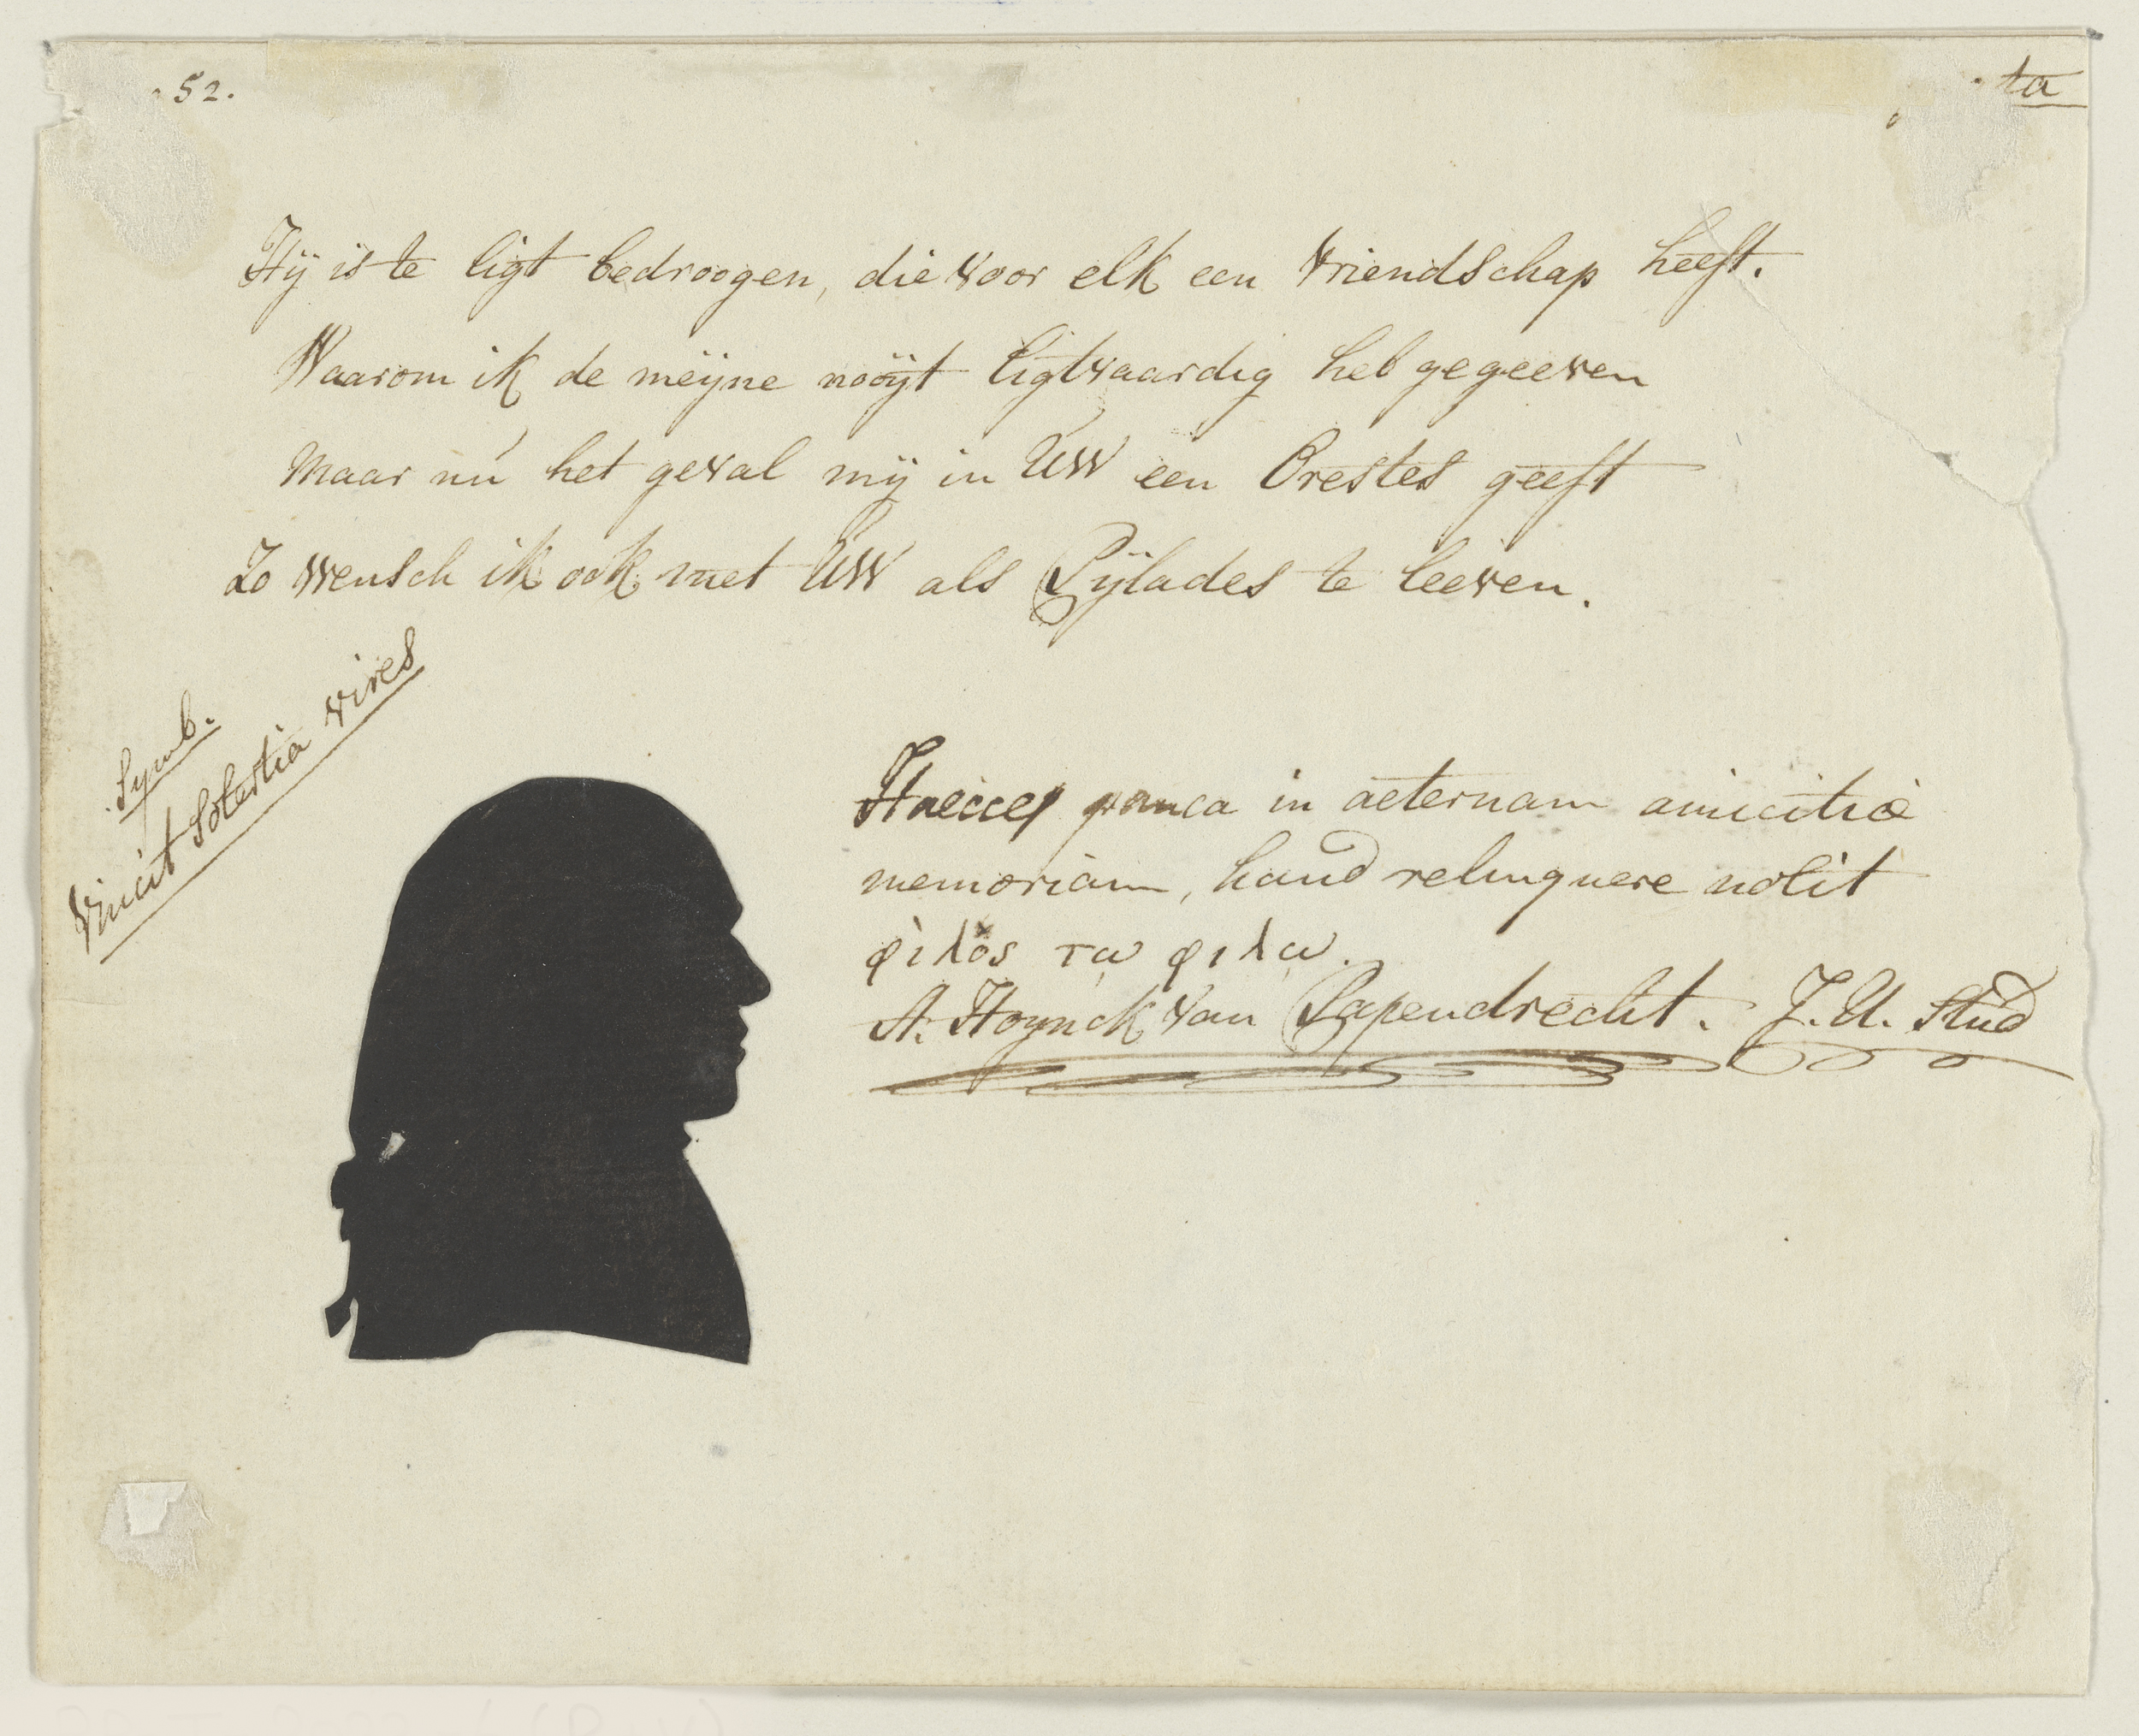 52.
ta
Hÿ is te ligt bedroogen, die voor elk een vriendschap heeft.
Waarom ik de meÿne nooÿt ligtvaardig heb gegeeven
Maar nú het geval mÿ in UW een Orestes geeft
Zo wensch ik ook met UW als Pÿlades te leeven.
Symb.
Vincit Solertia vires
pauca in aeternam amicitiæ
memoriam, haud relinquere nolit
φιλος τω φιλω.
A. Hoynck van Papendrecht. J. U. Stud